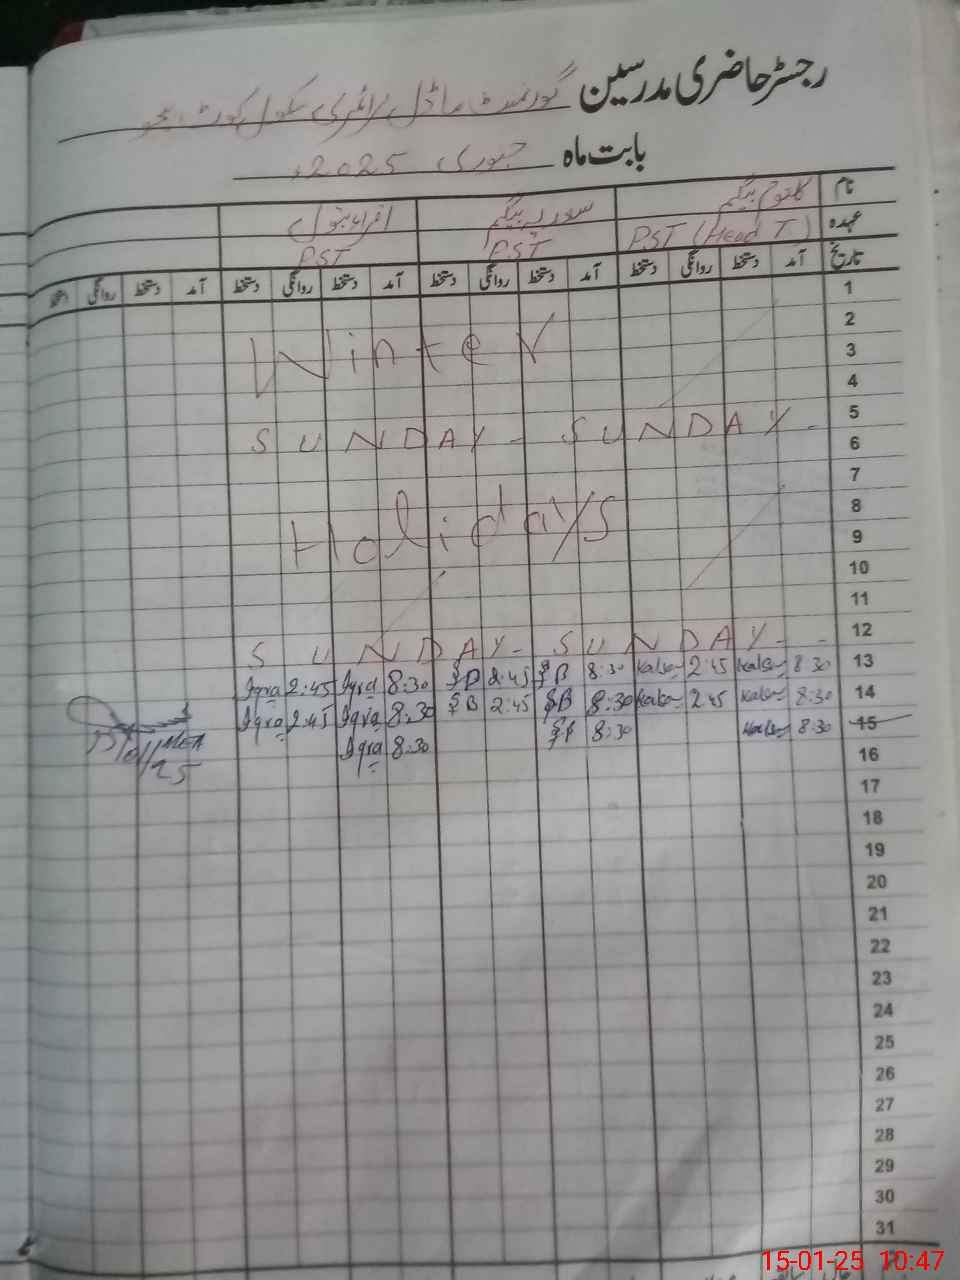 رجسٹر حاضری مدرسین گورنمنٹ ماڈل پرائمری سکول کوٹ
بابت ماہ جنوری 2025ء
نام کلثوم بیگم بیگم اقراء بتول
عہدہ PST (Head T) PST PST
تاریخ آمد دستخط روانگی دستخط آمد دستخط روانگی دستخط آمد دستخط روانگی دستخط آمد دستخط روانگی دستخط
1
2
3 Winter
4
5 SUNDAY - SUNDAY -
6
7
8
9 Holidays
10
11
12 SUNDAY - SUNDAY - -
13 8:30 2:45 8:30 2:45 8:30 Iqra 2:45 Iqra
14 8:30 2:45 8:30 SB 2:45 SB 8:30 Iqra 2:45 Iqra
15 8:30 8:30 8:30 Iqra
16
17
18
19
20
21
22
23
24
25
26
27
28
29
30
31
15-01-25 10:47